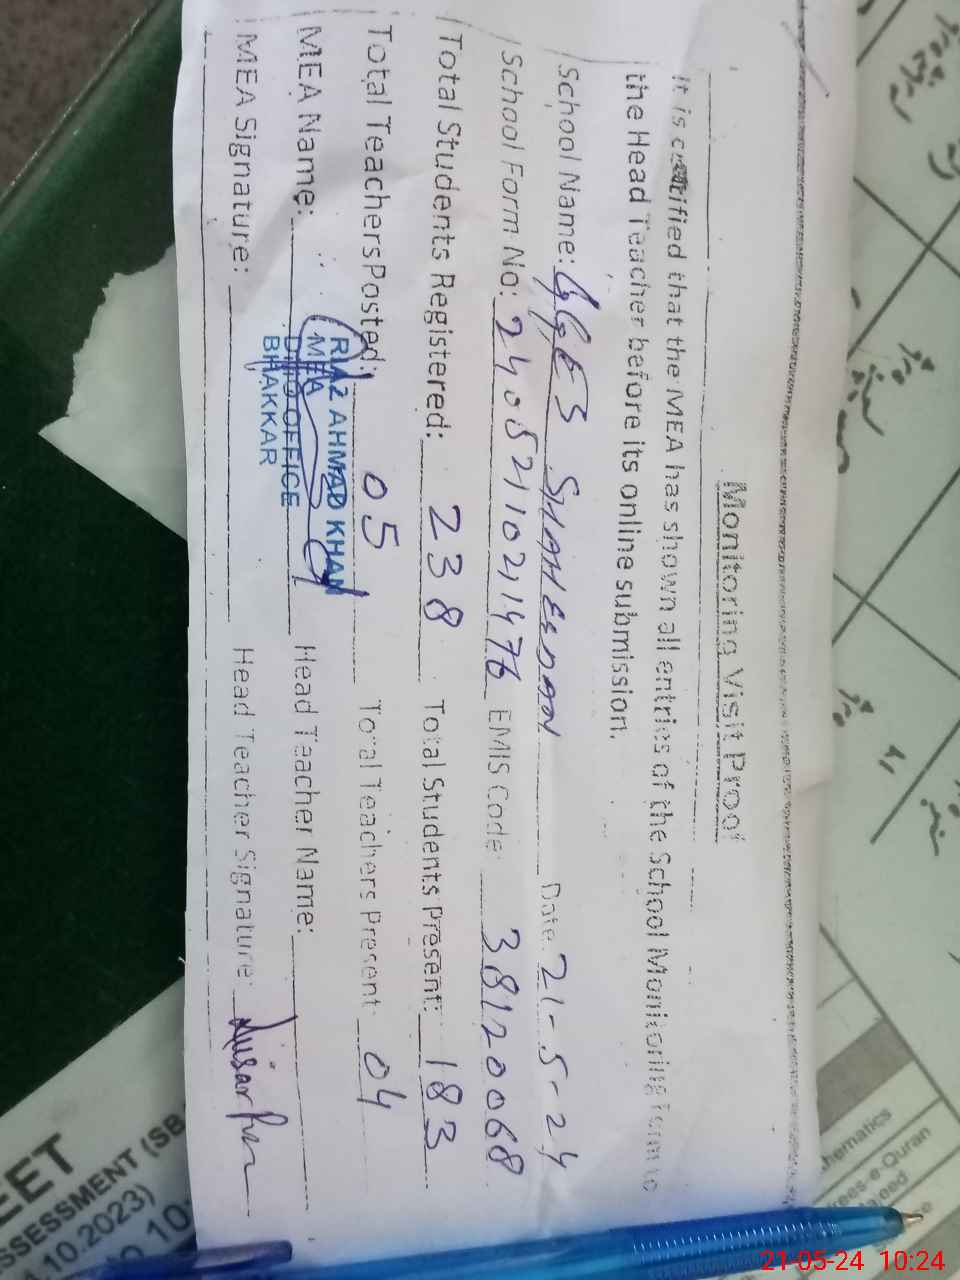 Monitoring Visit Proof
It is certified that the MEA has shown all entries of the School Monitoring Form to
the Head Teacher before its online submission.
School Name: GGES SHAHESDAN Date: 21-5-24
School Form No: 2405211021476 EMIS Code: 38120068
Total Students Registered: 238 Total Students Present: 183
Total Teachers Posted: 05 Total Teachers Present 04
MEA Name: Head Teacher Name:
RIAZ AHMAD KHAN
MEA
OFFICE
BHAKKAR
MEA Signature: Head Teacher Signature:
EET
ASSESSMENT (SBA
10.2023)
10
hematics
-e-Quran
21-05-24 10:24